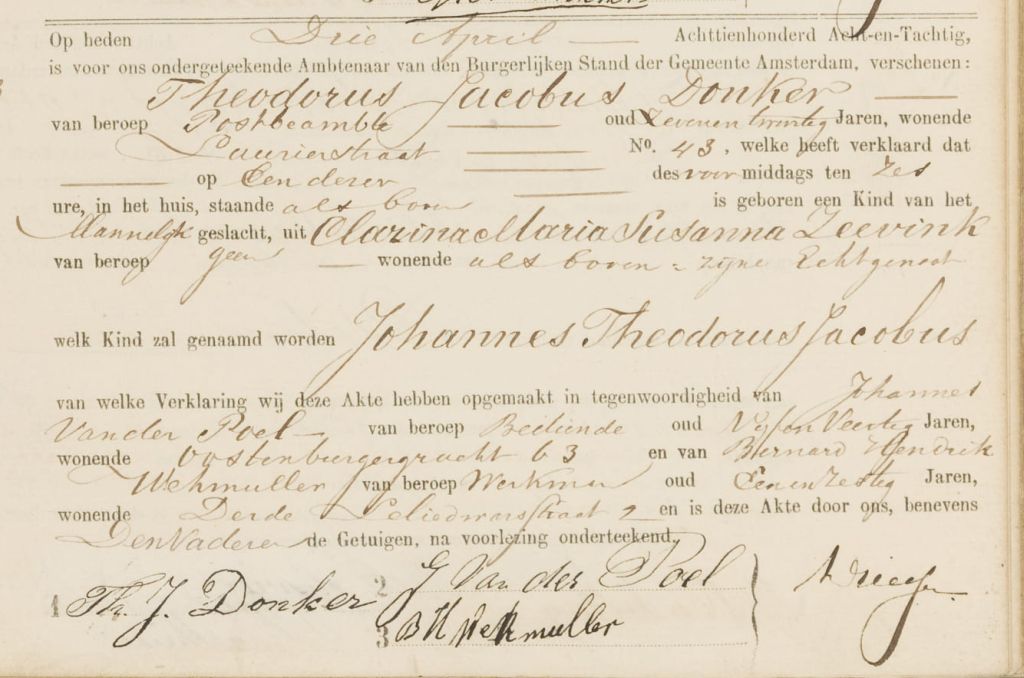 Op heden Drie April Achttienhonderd Acht-en-Tachtig,
is voor ons ondergeteekende Ambtenaar van den Burgerlijken Stand der Gemeente Amsterdam, verschenen:
Theodorus Jacobus Donker
van beroep Postbeambte oud Zevenentwintig Jaren, wonende
Laurierstraat No. 43, welke heeft verklaard dat
op Een dezer des voormiddags ten Zes
ure, in het huis, staande als boven is geboren een Kind van het
Mannelijk geslacht, uit Clazina Maria Susanna Zeevink
van beroep geen wonende als boven = zijne Echtgenoot
welk Kind zal genaamd worden Johannes Theodorus Jacobus
van welke Verklaring wij deze Akte hebben opgemaakt in tegenwoordigheid van Johannes
Van der Poel van beroep Bediende oud Vijf en Veertig Jaren,
wonende Oostenburgergracht 63 en van Bernard Hendrik
Wehmuller van beroep Werkman oud Een en zestig Jaren,
wonende Derde Leliedwarsstraat 2 en is deze Akte door ons, benevens
Den Vader en de Getuigen, na voorlezing onderteekend.
1 Th. J. Donker 2 J Van der Poel
3 B H Wehmuller